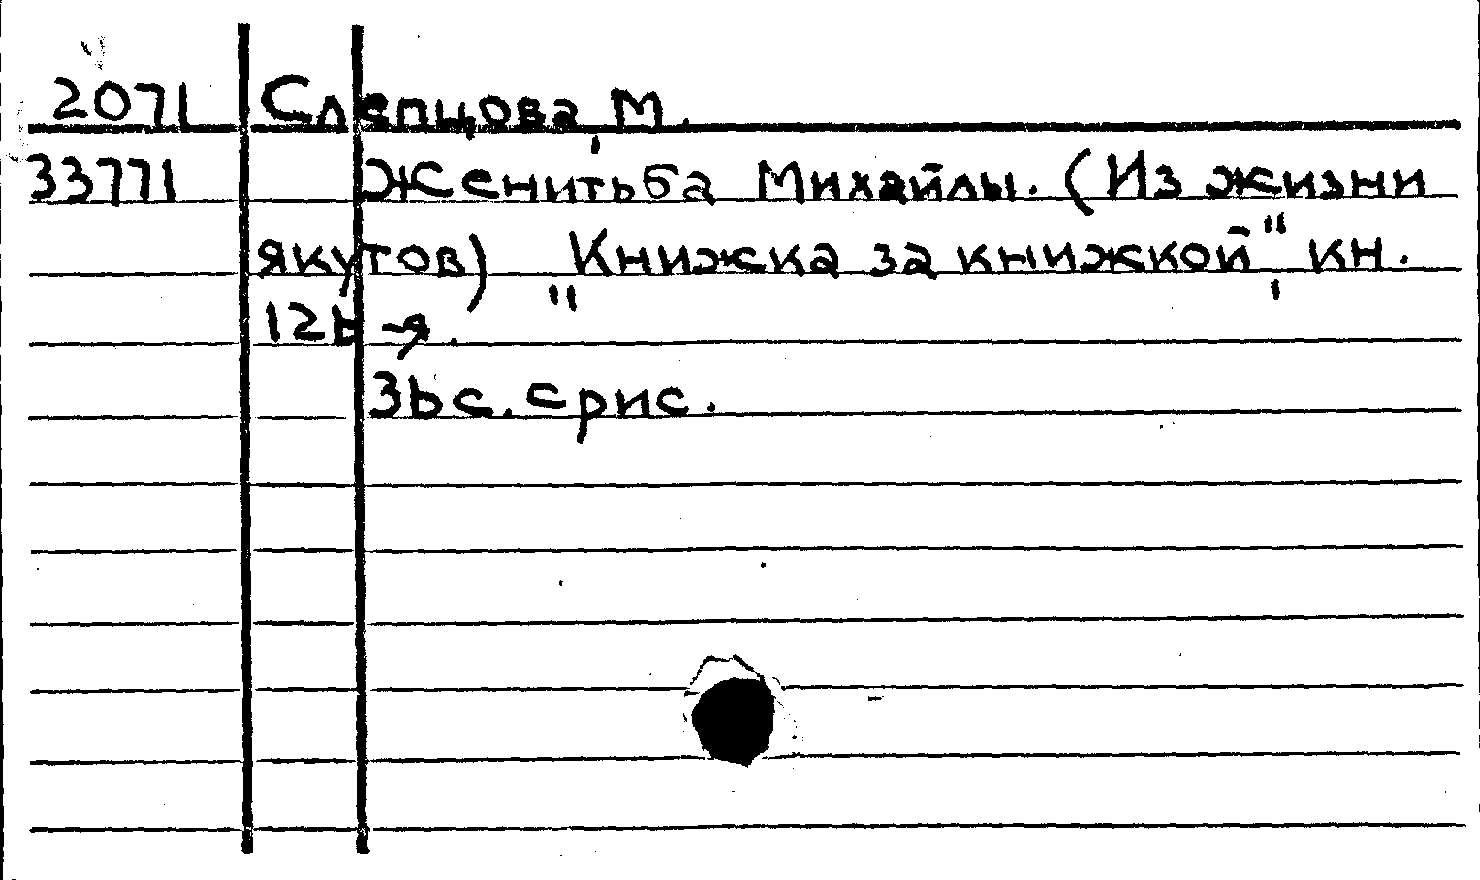 2071 Слепцова, М.
33771 Женитьба Михайлы. (Из жизни
якутов) "Книжка за книжкой", кн.
126-я.
36 с. с рис.